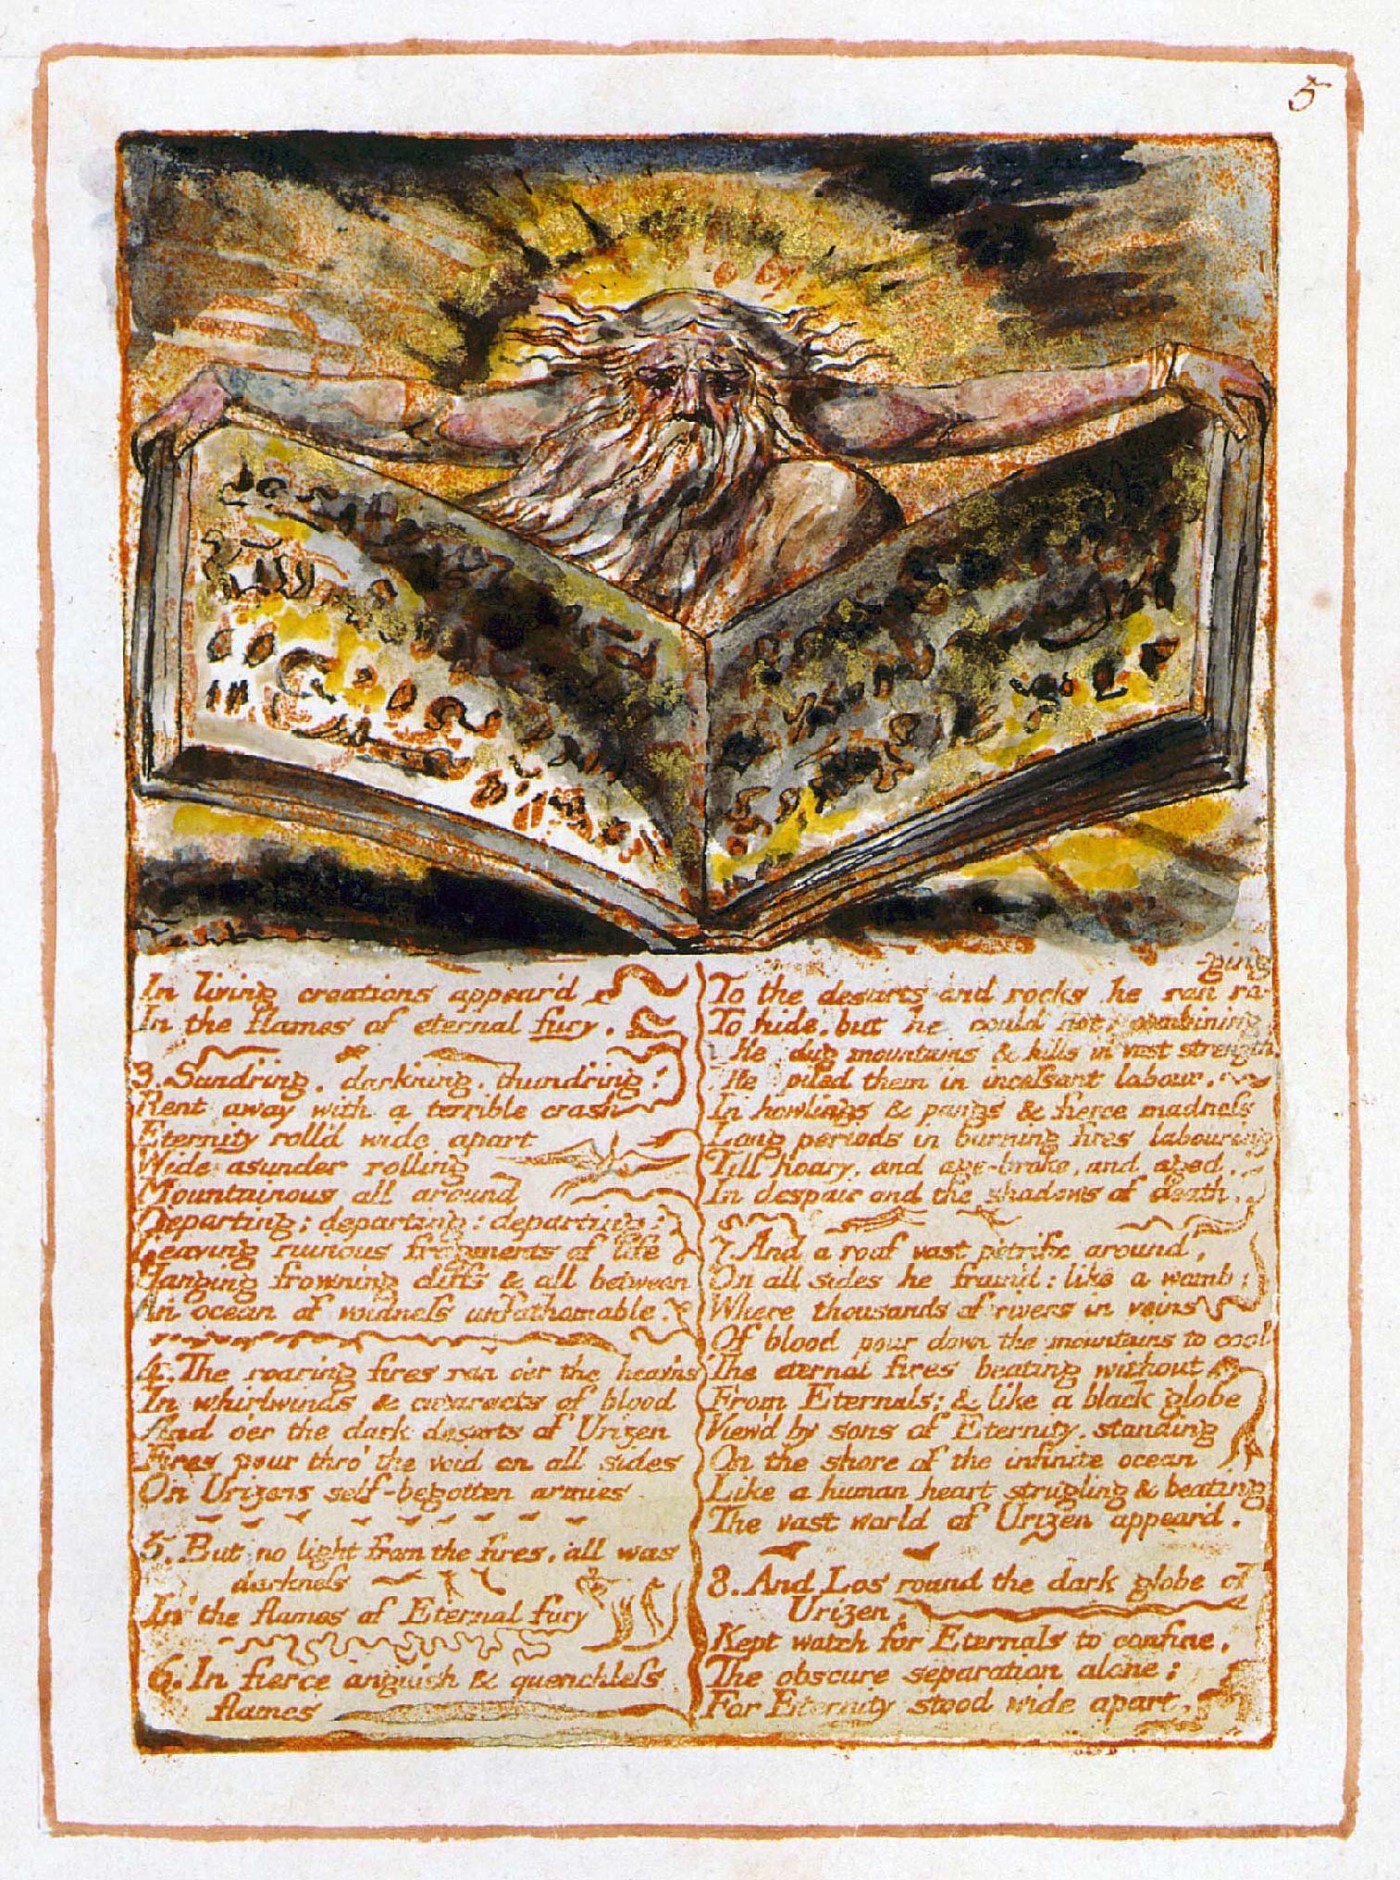 5
In living creations appear'd
In the flames of eternal fury.
3. Sundring, darkning, thundring!
Rent away with a terrible crash
Eternity roll'd wide apart
Wide asunder rolling
Mountainous all around
Departing; departing; departing:
Leaving ruinous fragments of life
Hanging frowning cliffs & all between
An ocean of voidness unfathomable.
4. The roaring fires ran o'er the heav'ns
In whirlwinds & cataracts of blood
And o'er the dark desarts of Urizen
Fires pour thro' the void on all sides
On Urizens self-begotten armies
5. But no light from the fires, all was
darkness
In the flames of Eternal fury
6. In fierce anguish & quenchless
flames
To the desarts and rocks he ran ra-
-ging
To hide, but he could not: combining
He dug mountains & hills in vast strength,
He piled them in incessant labour,
In howlings & pangs & fierce madness
Long periods in burning fires labouring
Till hoary, and age-broke, and aged,
In despair and the shadows of death.
7. And a roof vast petrific around,
On all sides he fram'd: like a womb;
Where thousands of rivers in veins
Of blood pour down the mountains to cool
The eternal fires beating without
From Eternals; & like a black globe
View'd by sons of Eternity, standing
On the shore of the infinite ocean
Like a human heart strugling & beating
The vast world of Urizen appear'd.
8. And Los round the dark globe of
Urizen,
Kept watch for Eternals to confine,
The obscure separation alone;
For Eternity stood wide apart,